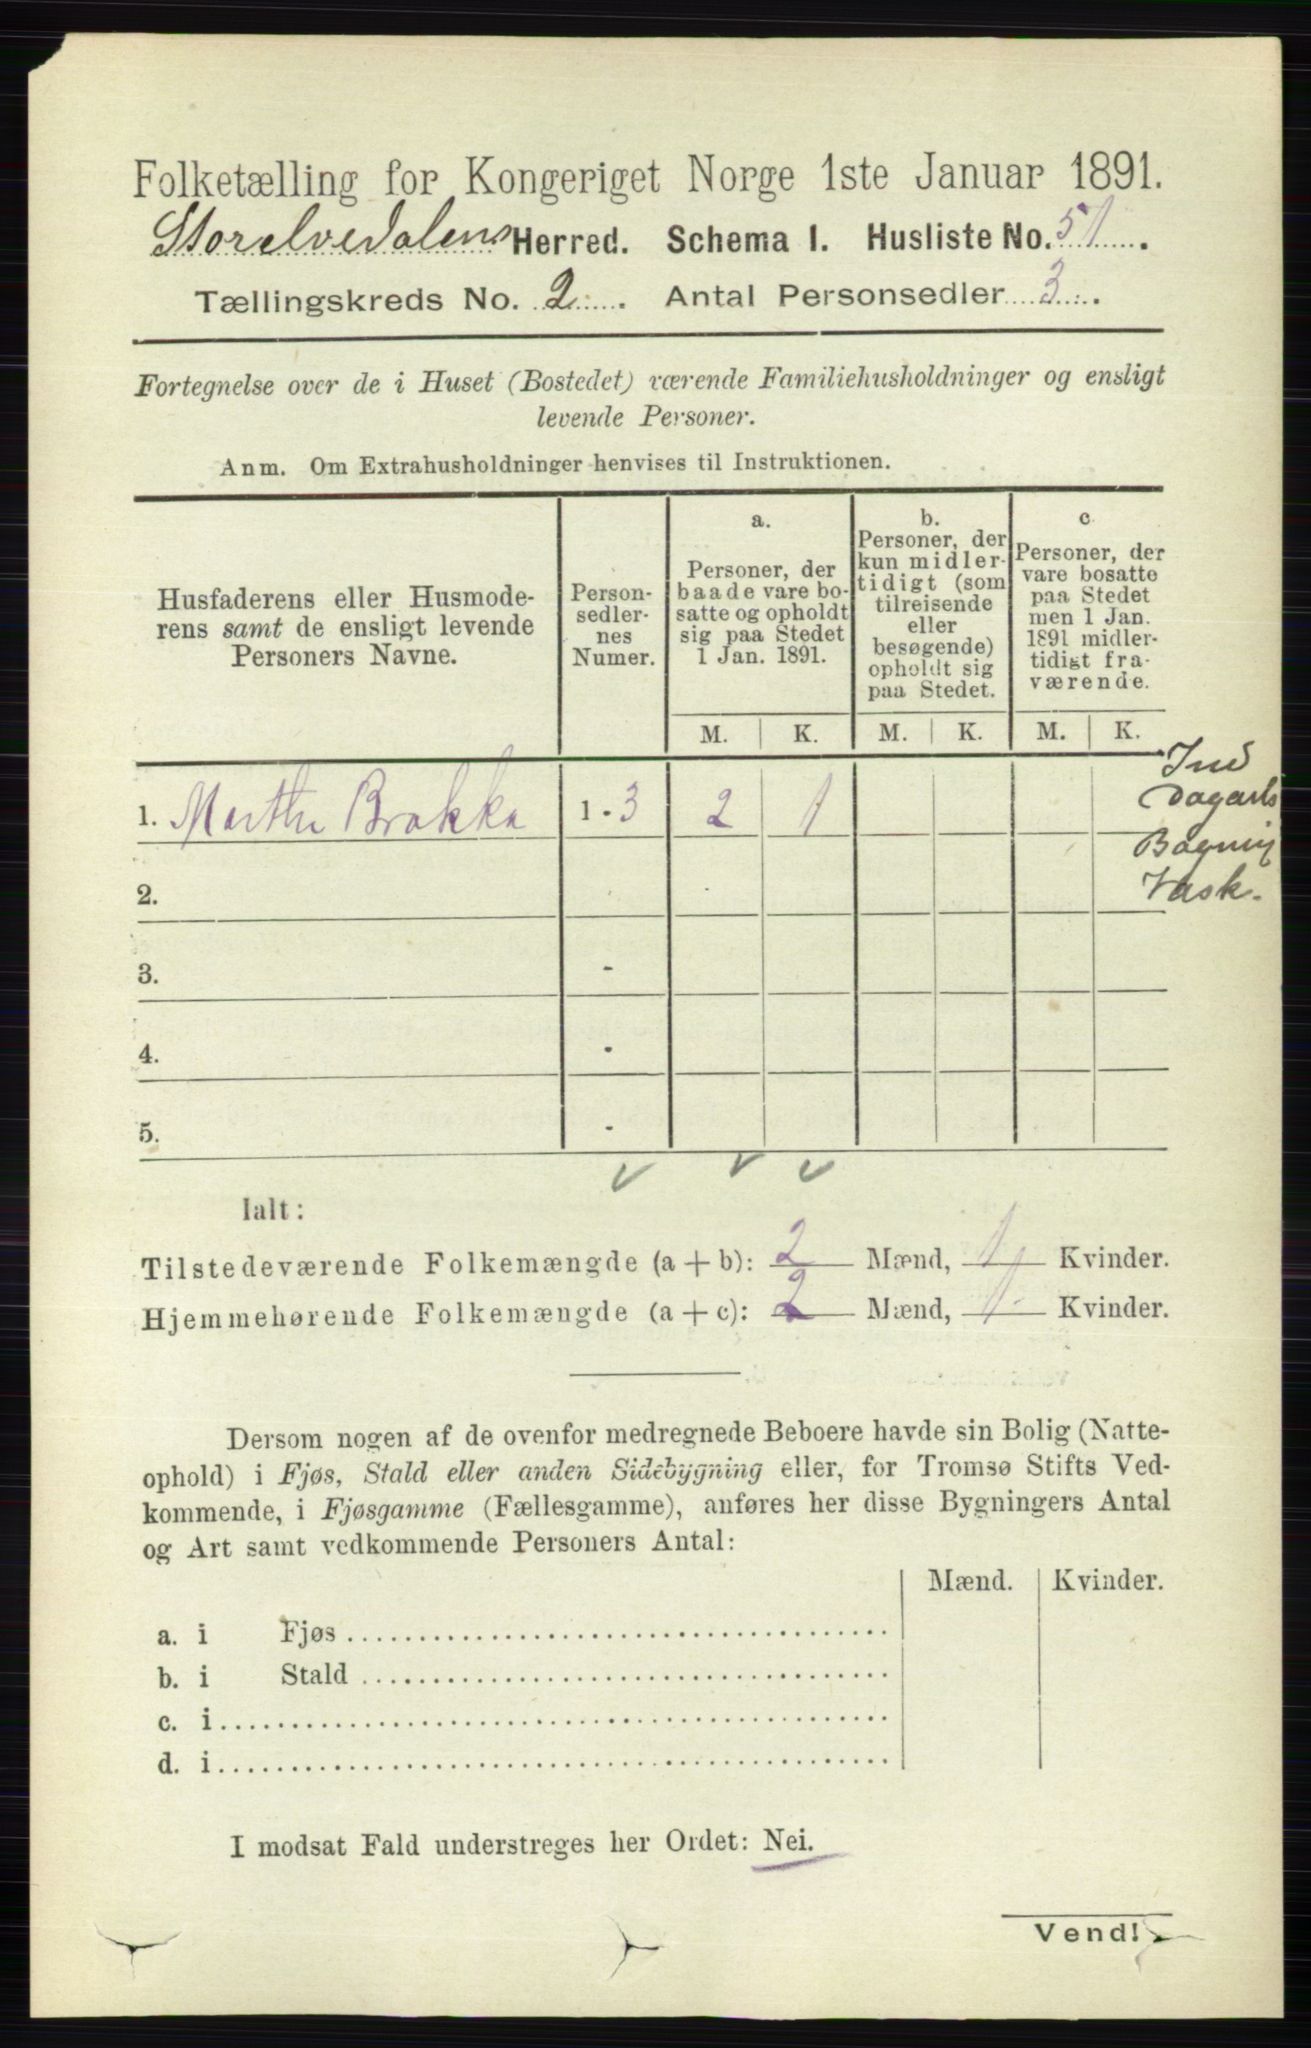 Folketælling for Kongeriget Norge 1ste Januar 1891.
Storelvedalens Herred. Schema I. Husliste No. 51.
Tællingskreds No. 2. Antal Personsedler 3.
Fortegnelse over de i Huset (Bostedet) værende Familiehusholdninger og ensligt
levende Personer.
Anm. Om Extrahusholdninger henvises til Instruktionen.
Husfaderens eller Husmode-
rens samt de ensligt levende
Personers Navne.
Person-
sedler-
nes
Numer.
a.
Personer, der
baade vare bo-
satte og opholdt
sig paa Stedet
1 Jan. 1891.
b.
Personer, der
kun midler-
tidigt (som
tilreisende
eller
besøgende)
opholdt sig
paa Stedet.
c.
Personer, der
vare bosatte
paa Stedet
men 1 Jan.
1891 midler-
tidigt fra-
værende.
M. K. M. K. M. K.
1. Marthe Brakka 1 - 3 2 1
Ind
Bagning
Vask.
2.
3. -
4. -
5. -
Ialt:
Tilstedeværende Folkemængde (a + b): 2 Mænd, 1 Kvinder.
Hjemmehørende Folkemængde (a + c): 2 Mænd, 1 Kvinder.
Dersom nogen af de ovenfor medregnede Beboere havde sin Bolig (Natte-
ophold) i Fjøs, Stald eller anden Sidebygning eller, for Tromsø Stifts Ved-
kommende, i Fjøsgamme (Fællesgamme), anføres her disse Bygningers Antal
og Art samt vedkommende Personers Antal:
Mænd. Kvinder.
a. i Fjøs
b. i Stald
c. i
d. i
I modsat Fald understreges her Ordet: Nei.
Vend!